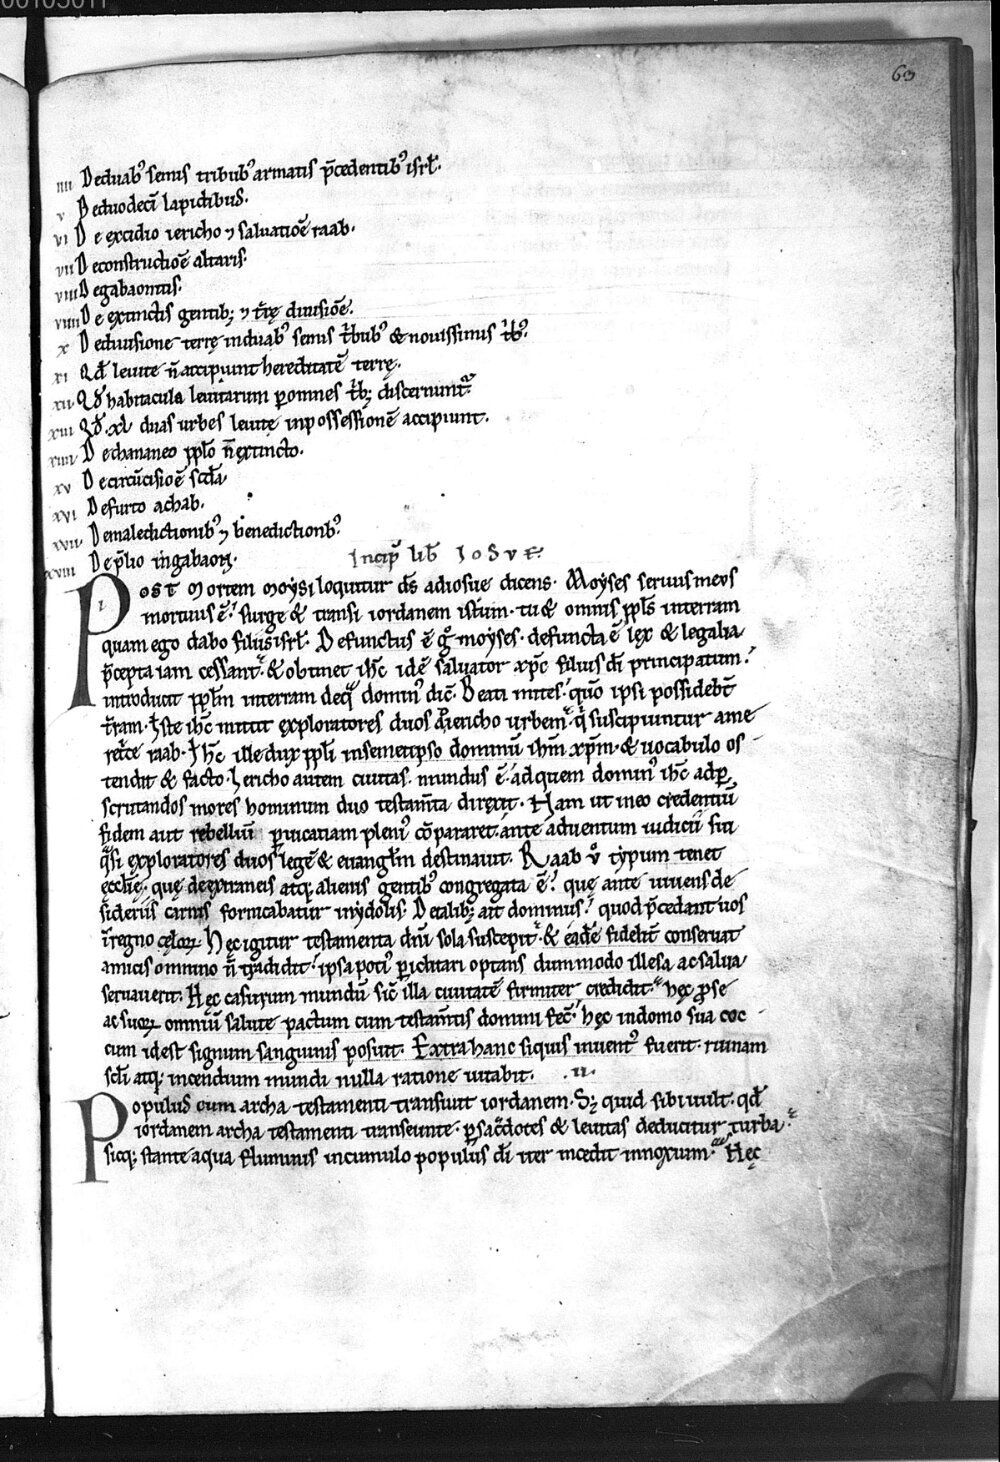 63
iiii Deduab᷒ semis tribub᷒ armatis p̄cedentib᷒ isrƚ.
v Deduodecī lapidibus.
vi De excidio iericho ⁊ saluatiōe raab.
vii Deconstructiōe altaris.
viii Degabaonitis.
viiii De extinctis gentib; ⁊ tr̄ę diuisiōe.
x Dediuisione terrę induab᷒ semis tͥbub᷒ & nouissimis tͥb᷒.
xi Qd̄ leuite n̄ accipiunt hereditatē terrę.
xii Qd̄ habitacula leuitarum p̱omnes tͥb; discernunt᷑.
xiii Qd̄ .xl duas urbes leuitę inpossessionē accipiunt.
xiiii Dechananeo pp̄lo n̄ extincto.
xv Decircūcisiōe scd̄a
xvi Defurto achab.
xvii Demaledictionib᷒ ⁊ benedictionib᷒.
xviii De p̄lio ingabaon. Incip̄ lib̄ IOSVE
Post Mortem moysi loquitur dn̄s adiosue dicens. Moyses seruus meus
mortuus ē. surge & transi iordanem istum. tu & omnis pp̄ls interram
quam ego dabo filiis isrƚ. Defunctus ē gͦ moyses. defuncta ē lex & legalia
p̄cepta iam cessant. & obtinet ih̄c idē saluator xp̄c filius dī principatum.
introducit pp̄lm interram deq̄ domin᷒ dic̄. Beati mites. quō ipsi possidebt̄
tr̄am. Iste ih̄c mittit exploratores duos adiericho urbem. qͥ suscipiuntur ame
retͥce raab. Ih̄c ille dux pp̄li insemetipso dominū ih̄m xp̄m. & uocabulo os
tendit & facto. Iericho autem ciuitas. mundus ē. adquem domin᷒ ih̄c adp̱
scrutandos mores hominum duo testam̄ta direxit. Nam ut ineo credentiū
fidem aut rebelliū p̱uicatiam pleni᷒ cōpararet. ante aduentum iudicii sui
qͣsi exploratores duos legē & euangƚm destinauit. Raab uͦ typum tenet
ęcclię. quę deextraneis atq; alienis gentib᷒ congregata ē. quę ante uiuens de
sideriis carnis fornicabatur inydolis. Detalib; ait dominus. quod p̄cedant uos
īregno cęloꝝ. Hęc igitur testamenta dn̄i sola suscepit. & eadē fidelit̄ conseruat
amicis omnino n̄ tͣdidit. ipsa poti᷒ p̱iclitari optans dummodo illesa ac salua
seruauerit. Hęc casurum mundū sic̄ illa ciuitatē firmiter credidit. hęc p̱ se
ac suoꝝ omniū salute pactum cum testam̄tis domini fec̄. hęc indomo sua coc
cum idest signum sanguinis posuit. Extra hanc siquis inuent᷒ fuerit. ruinam
scl̄i atq; incendium mundi nulla ratione uitabit. .ii.
Populus cum archa testamenti transiuit iordanem. Sꝫ quid sibi uult. qd̄
iordanem archa testamenti transeunte. p̱ sac̄dotes & leuitas deducitur turba.
sicq; stante aqua fluminis incumulo populus dī iter incedit innoxium. Hęc